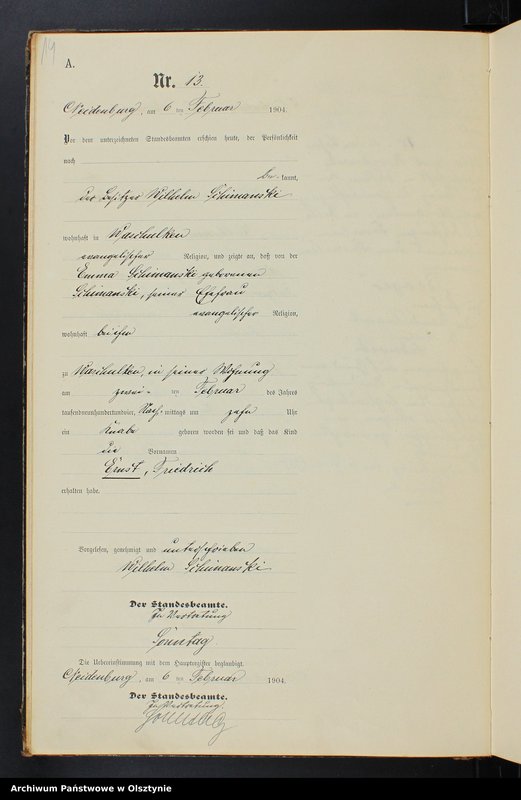 14
A.
Nr. 13.
Neidenburg, am 6 ten Februar 1904.
Vor dem unterzeichneten Standesbeamten erschien heute, der Persönlichkeit
nach
be- kannt,
der Besitzer Wilhelm Schimanski
wohnhaft in Waschulken
evangelischer Religion, und zeigte an, daß von der
Emma Schimanski geborenen
Schimanski, seiner Ehefrau
evangelischer Religion,
wohnhaft bei ihm
zu Waschulken, in seiner Wohnung
am zwei- ten Februar des Jahres
tausendneunhundertundvier, Nach- mittags um zehn Uhr
ein Knabe geboren worden sei und daß das Kind
die Vornamen
Ernst, Friedrich
erhalten habe.
Vorgelesen, genehmigt und unterschrieben
Wilhelm Schimanski
Der Standesbeamte.
In Vertretung
Sonntag
Die Uebereinstimmung mit dem Hauptregister beglaubigt.
Neidenburg, am 6 ten Februar 1904.
Der Standesbeamte.
In Vertretung.
Sonntag
Archiwum Państwowe w Olsztynie